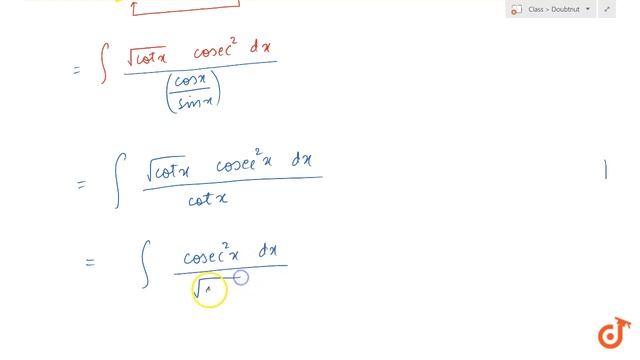 Class > Doubtnut
= ∫ √cotx cosec² dx / (cosx / sinx)
= ∫ √cotx cosec²x dx / cotx
= ∫ cosec²x dx / √